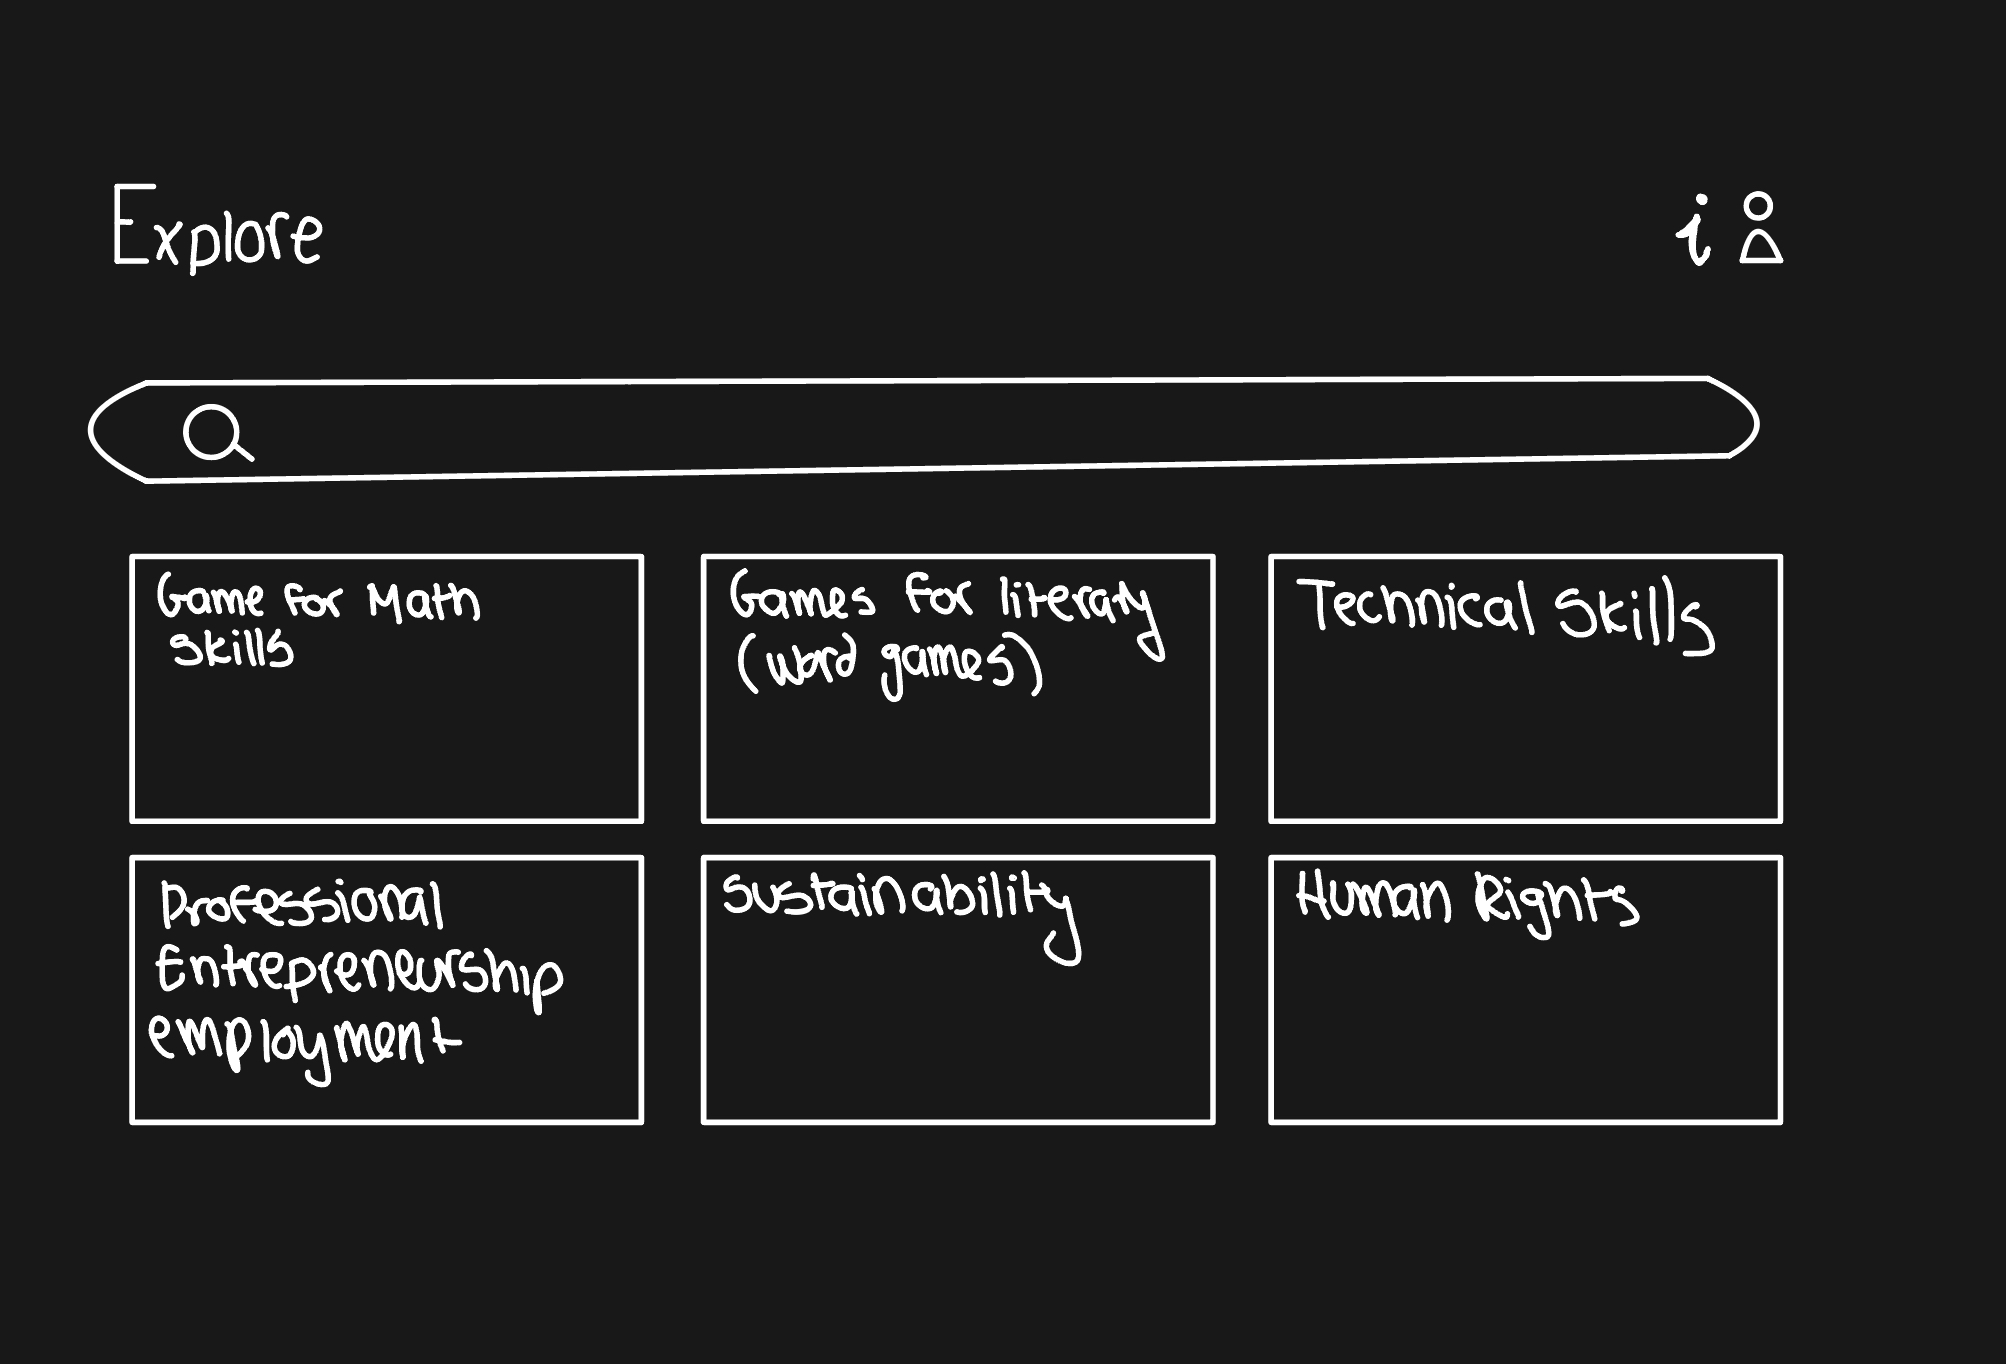 Explore
i
Game for Math
skills
Games for literary
(word games)
Technical Skills
Professional
Entrepreneurship
employment
Sustainability
Human Rights